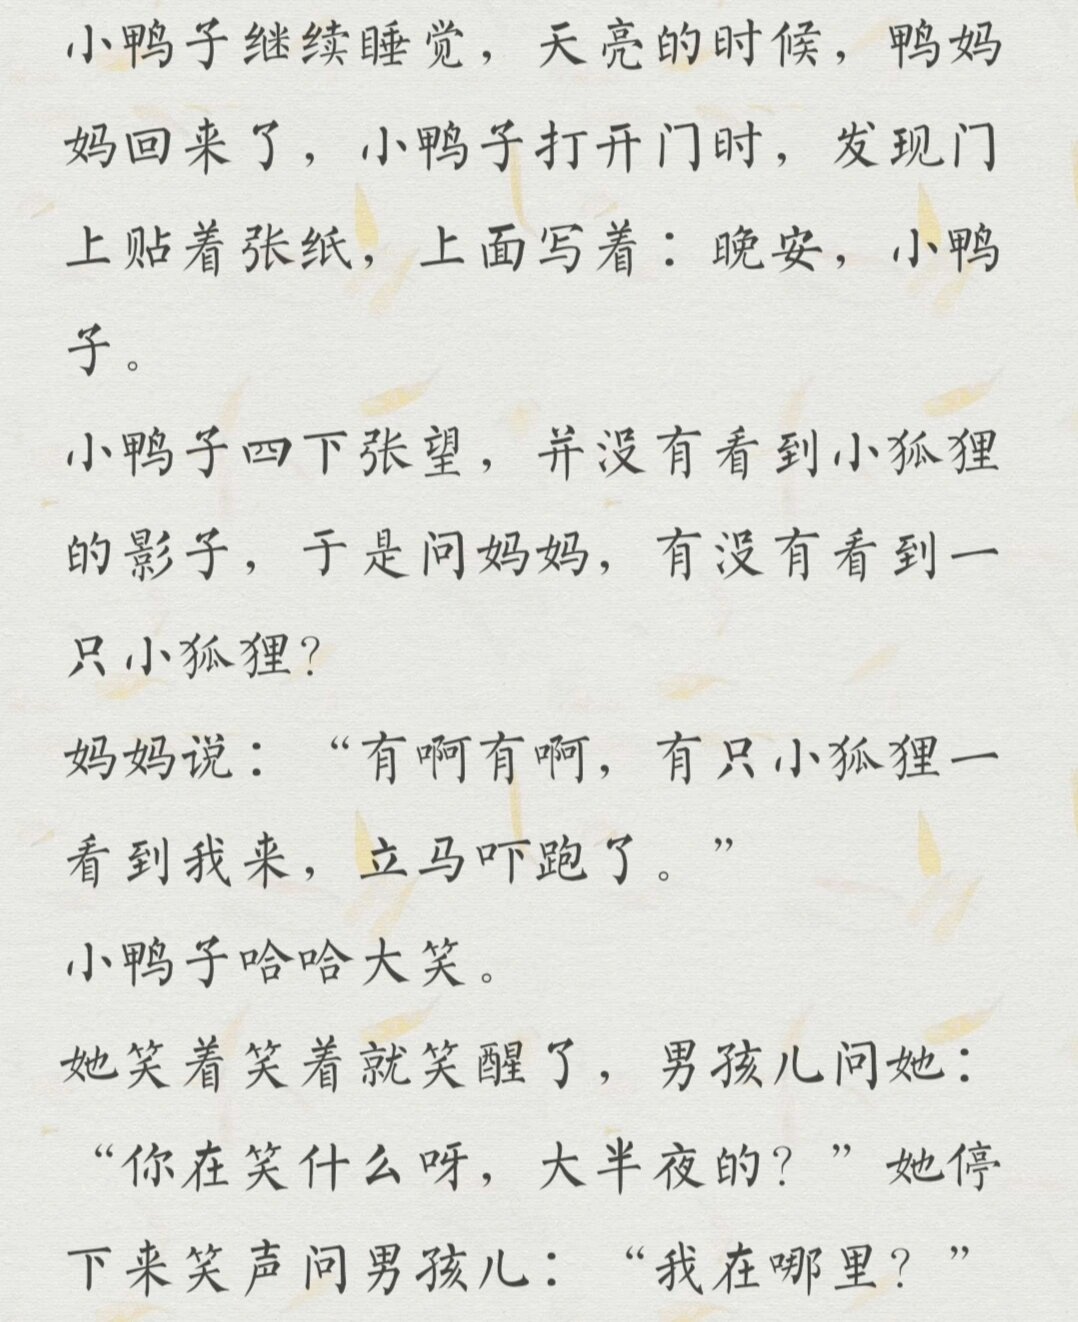 小鸭子继续睡觉，天亮的时候，鸭妈
妈回来了，小鸭子打开门时，发现门
上贴着张纸，上面写着：晚安，小鸭
子。
小鸭子四下张望，并没有看到小狐狸
的影子，于是问妈妈，有没有看到一
只小狐狸？
妈妈说：“有啊有啊，有只小狐狸一
看到我来，立马吓跑了。”
小鸭子哈哈大笑。
她笑着笑着就笑醒了，男孩儿问她：
“你在笑什么呀，大半夜的？”她停
下来笑声问男孩儿：“我在哪里？”